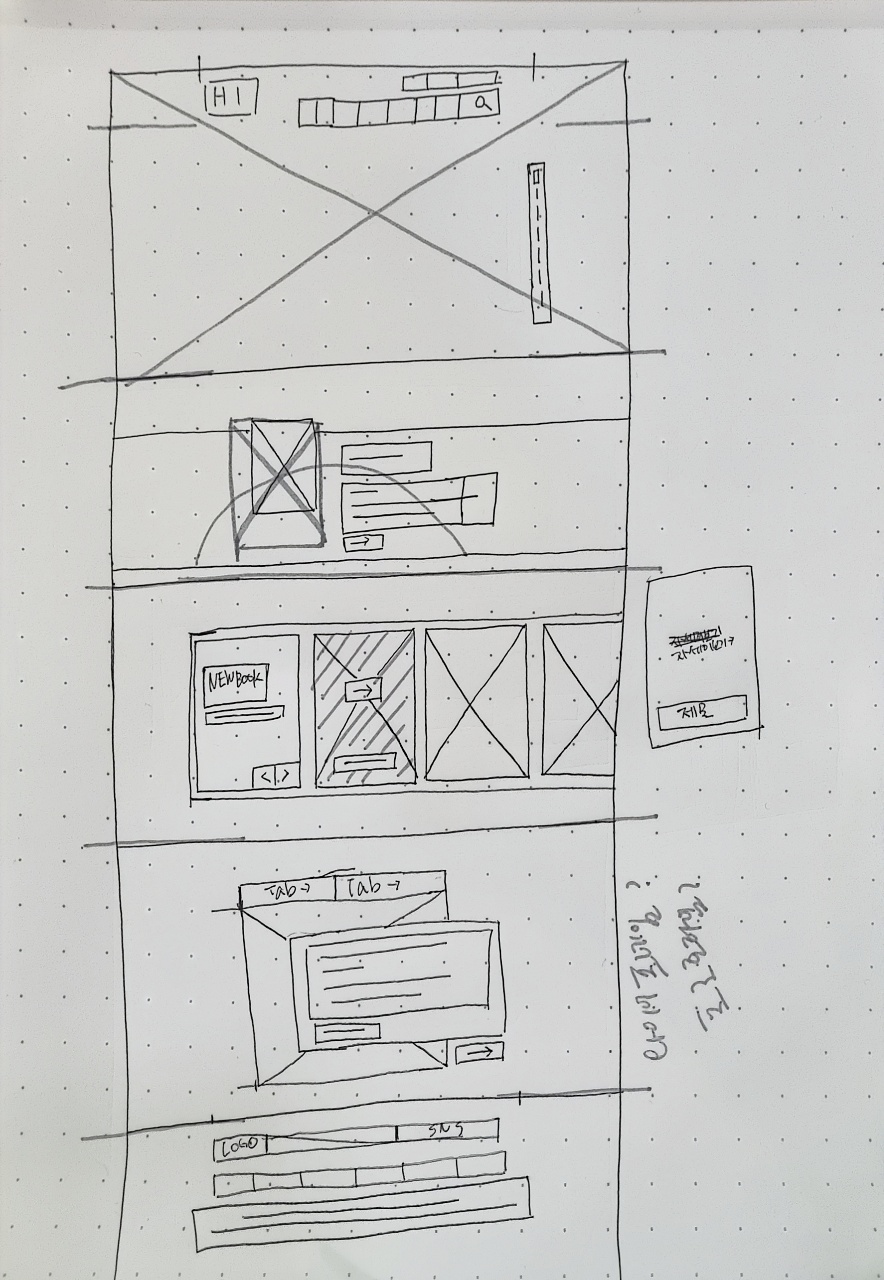 HI
NEW BOOK
< | >
자세히보기→
제목
Tab → Tab →
LOGO
SNS